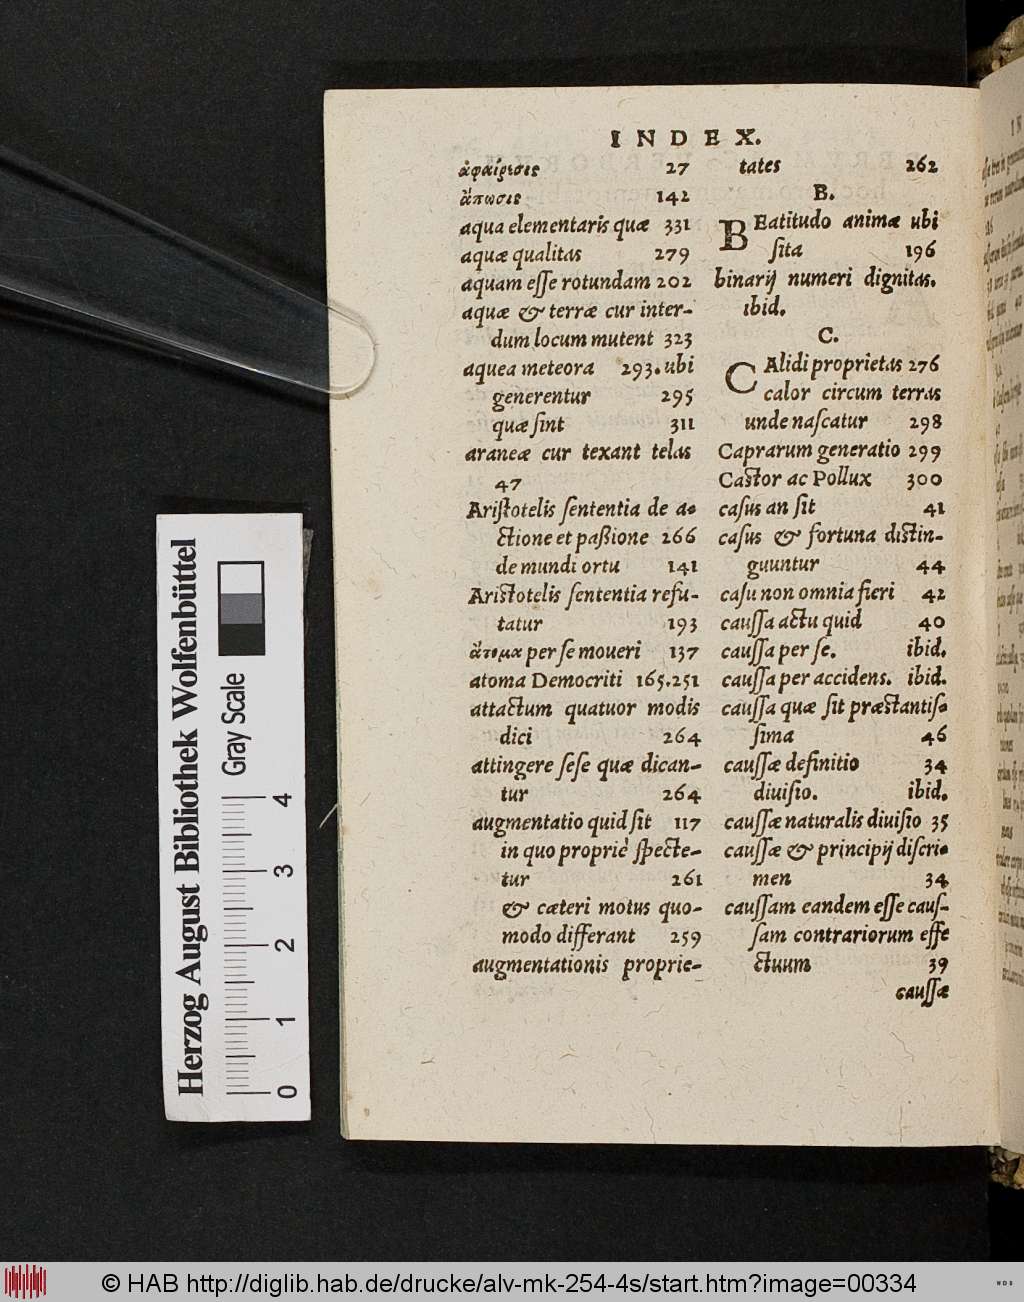 INDEX.
ἀφαίρεσις 27
ἄπωσις 142
aqua elementaris quæ 331
aquæ qualitas 279
aquam eſſe rotundam 202
aquæ & terræ cur inter-
dum locum mutent 323
aquea meteora 293. ubi
generentur 295
quæ ſint 311
araneæ cur texant telas
47
Ariſtotelis ſententia de a-
ctione et paßione 266
de mundi ortu 141
Ariſtotelis ſententia refu-
tatur 193
ἄτομα per ſe moueri 137
atoma Democriti 165.251
attactum quatuor modis
dici 264
attingere ſeſe quæ dican-
tur 264
augmentatio quid ſit 117
in quo propriè ſpecte-
tur 261
& cæteri motus quo-
modo differant 259
augmentationis proprie-
tates 262
B.
BEatitudo animæ ubi
ſita 196
binarij numeri dignitas.
ibid.
C.
CAlidi proprietas 276
calor circum terras
unde naſcatur 298
Caprarum generatio 299
Caſtor ac Pollux 300
caſus an ſit 41
caſus & fortuna diſtin-
guuntur 44
caſu non omnia fieri 42
cauſſa actu quid 40
cauſſa per ſe. ibid.
cauſſa per accidens. ibid.
cauſſa quæ ſit præſtantiſ-
ſima 46
cauſſæ definitio 34
diuiſio. ibid.
cauſſæ naturalis diuiſio 35
cauſſæ & principij diſcri-
men 34
cauſſam eandem eſſe cauſ-
ſam contrariorum effe
ctuum 39
cauſſæ
Herzog August Bibliothek Wolfenbüttel
Gray Scale
0 1 2 3 4
© HAB http://diglib.hab.de/drucke/alv-mk-254-4s/start.htm?image=00334